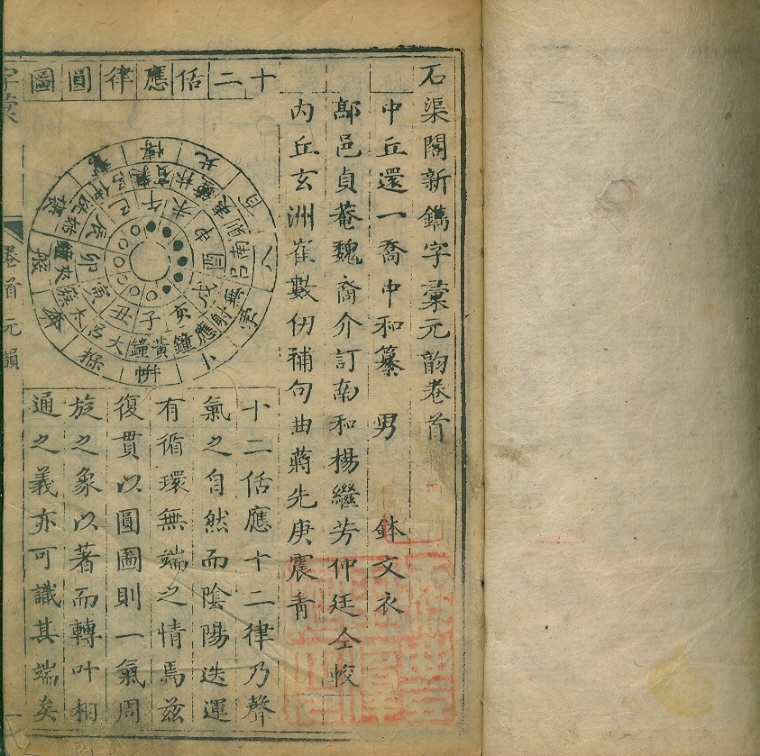 石渠閣新鐫字彙元韵卷首
中丘還一喬中和纂 男 鉢文衣
鄗邑貞菴魏裔介訂南和楊繼芳仲廷仝較
内丘玄洲崔數仞補句曲蔣先庚震青
十二佸應律圓圖
子丑寅卯辰巳午未申酉戌亥
黄鐘
大呂
南呂
無射
應鐘
十二佸應十二律乃聲
氣之自然而陰陽迭運
有循環無端之情焉兹
復貫以圓圖則一氣周
旋之象以著而轉叶相
通之義亦可識其端矣
字彙
卷首元韻
一